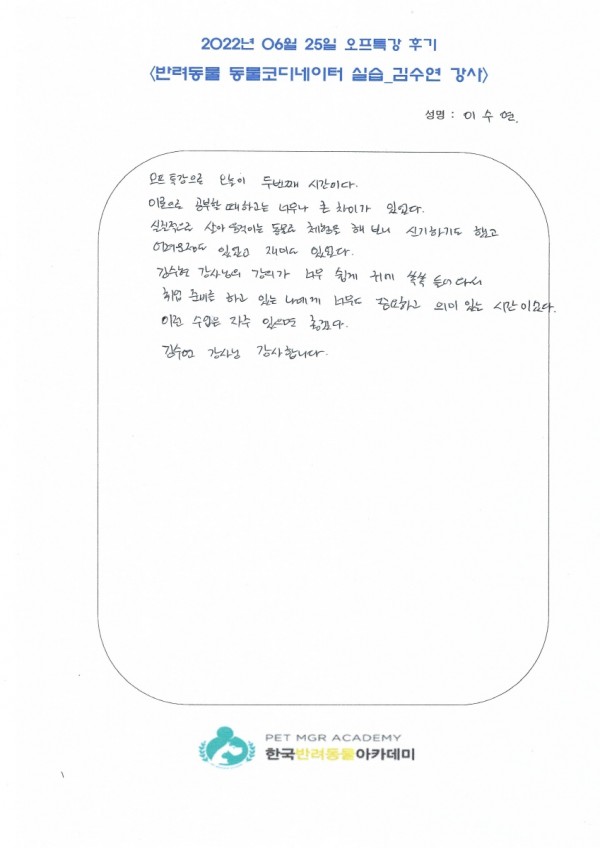 2022년 06월 25일 오프특강 후기
<반려동물 동물코디네이터 실습_김수연 강사>
성명 : 이수현.
오프 특강으로 오늘이 두번째 시간이다.
이론으로 공부할 때하고는 너무나 큰 차이가 있었다.
실전적으로 살아 움직이는 동물로 체험을 해 보니 신기하기도 했고
어려운점도 있었고 재미도 있었다.
김수현 강사님의 강의가 너무 쉽게 귀에 쏙쏙 들어 다시
취업 준비를 하고 있는 나에게 너무도 중요하고 의미 있는 시간이었다.
이런 수업은 자주 있으면 좋겠다.
김수연 강사님 감사합니다.
PET MGR ACADEMY
한국반려동물아카데미